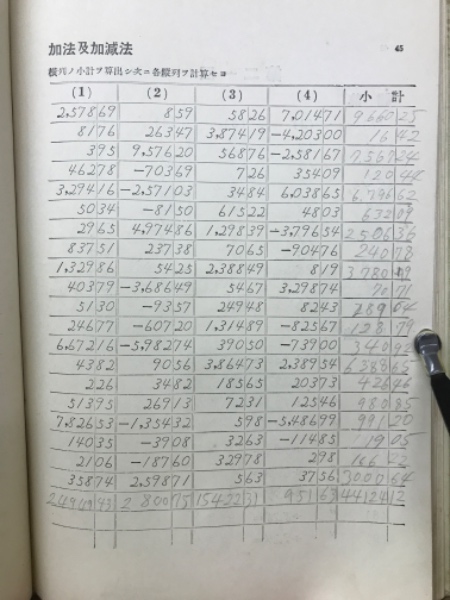 加法及加減法 45
横列ノ小計ヲ算出シ次ニ各縦列ヲ計算セヨ
(1) (2) (3) (4) 小 計
2,578 69 8 59 58 26 7,014 71 9660 25
81 76 263 47 3,874 19 -4,203 00 16 42
3 95 9,576 20 568 76 -2,581 67 7567 24
462 78 -703 69 7 26 354 09 120 44
3,294 16 -2,571 03 34 84 6,038 65 6,796 62
50 34 -81 50 615 22 48 03 632 09
29 65 4,974 86 1,298 39 -3,796 54 2506 36
837 51 237 38 70 65 -904 76 240 78
1,329 86 54 25 2,388 49 8 19
403 79 -3,686 49 54 67 3,298 74 70 71
51 30 -93 57 249 48 82 43 289 64
246 77 -607 20 1,314 89 -825 67 128 79
6,672 16 -5,982 74 390 50 -739 00
43 82 90 56 3,864 73 2,389 54 6388 65
2 26 34 82 185 65 203 73 426 46
513 95 269 13 72 31 125 46 980 85
7,826 53 -1,354 32 5 98 -5,486 99 991 20
140 35 -39 08 32 63 -114 85 19 05
21 06 -187 60 329 78 2 98 166 22
358 74 2,598 71 5 63 37 56 3000 64
2 800 75 15422 31 951 63 44124 12